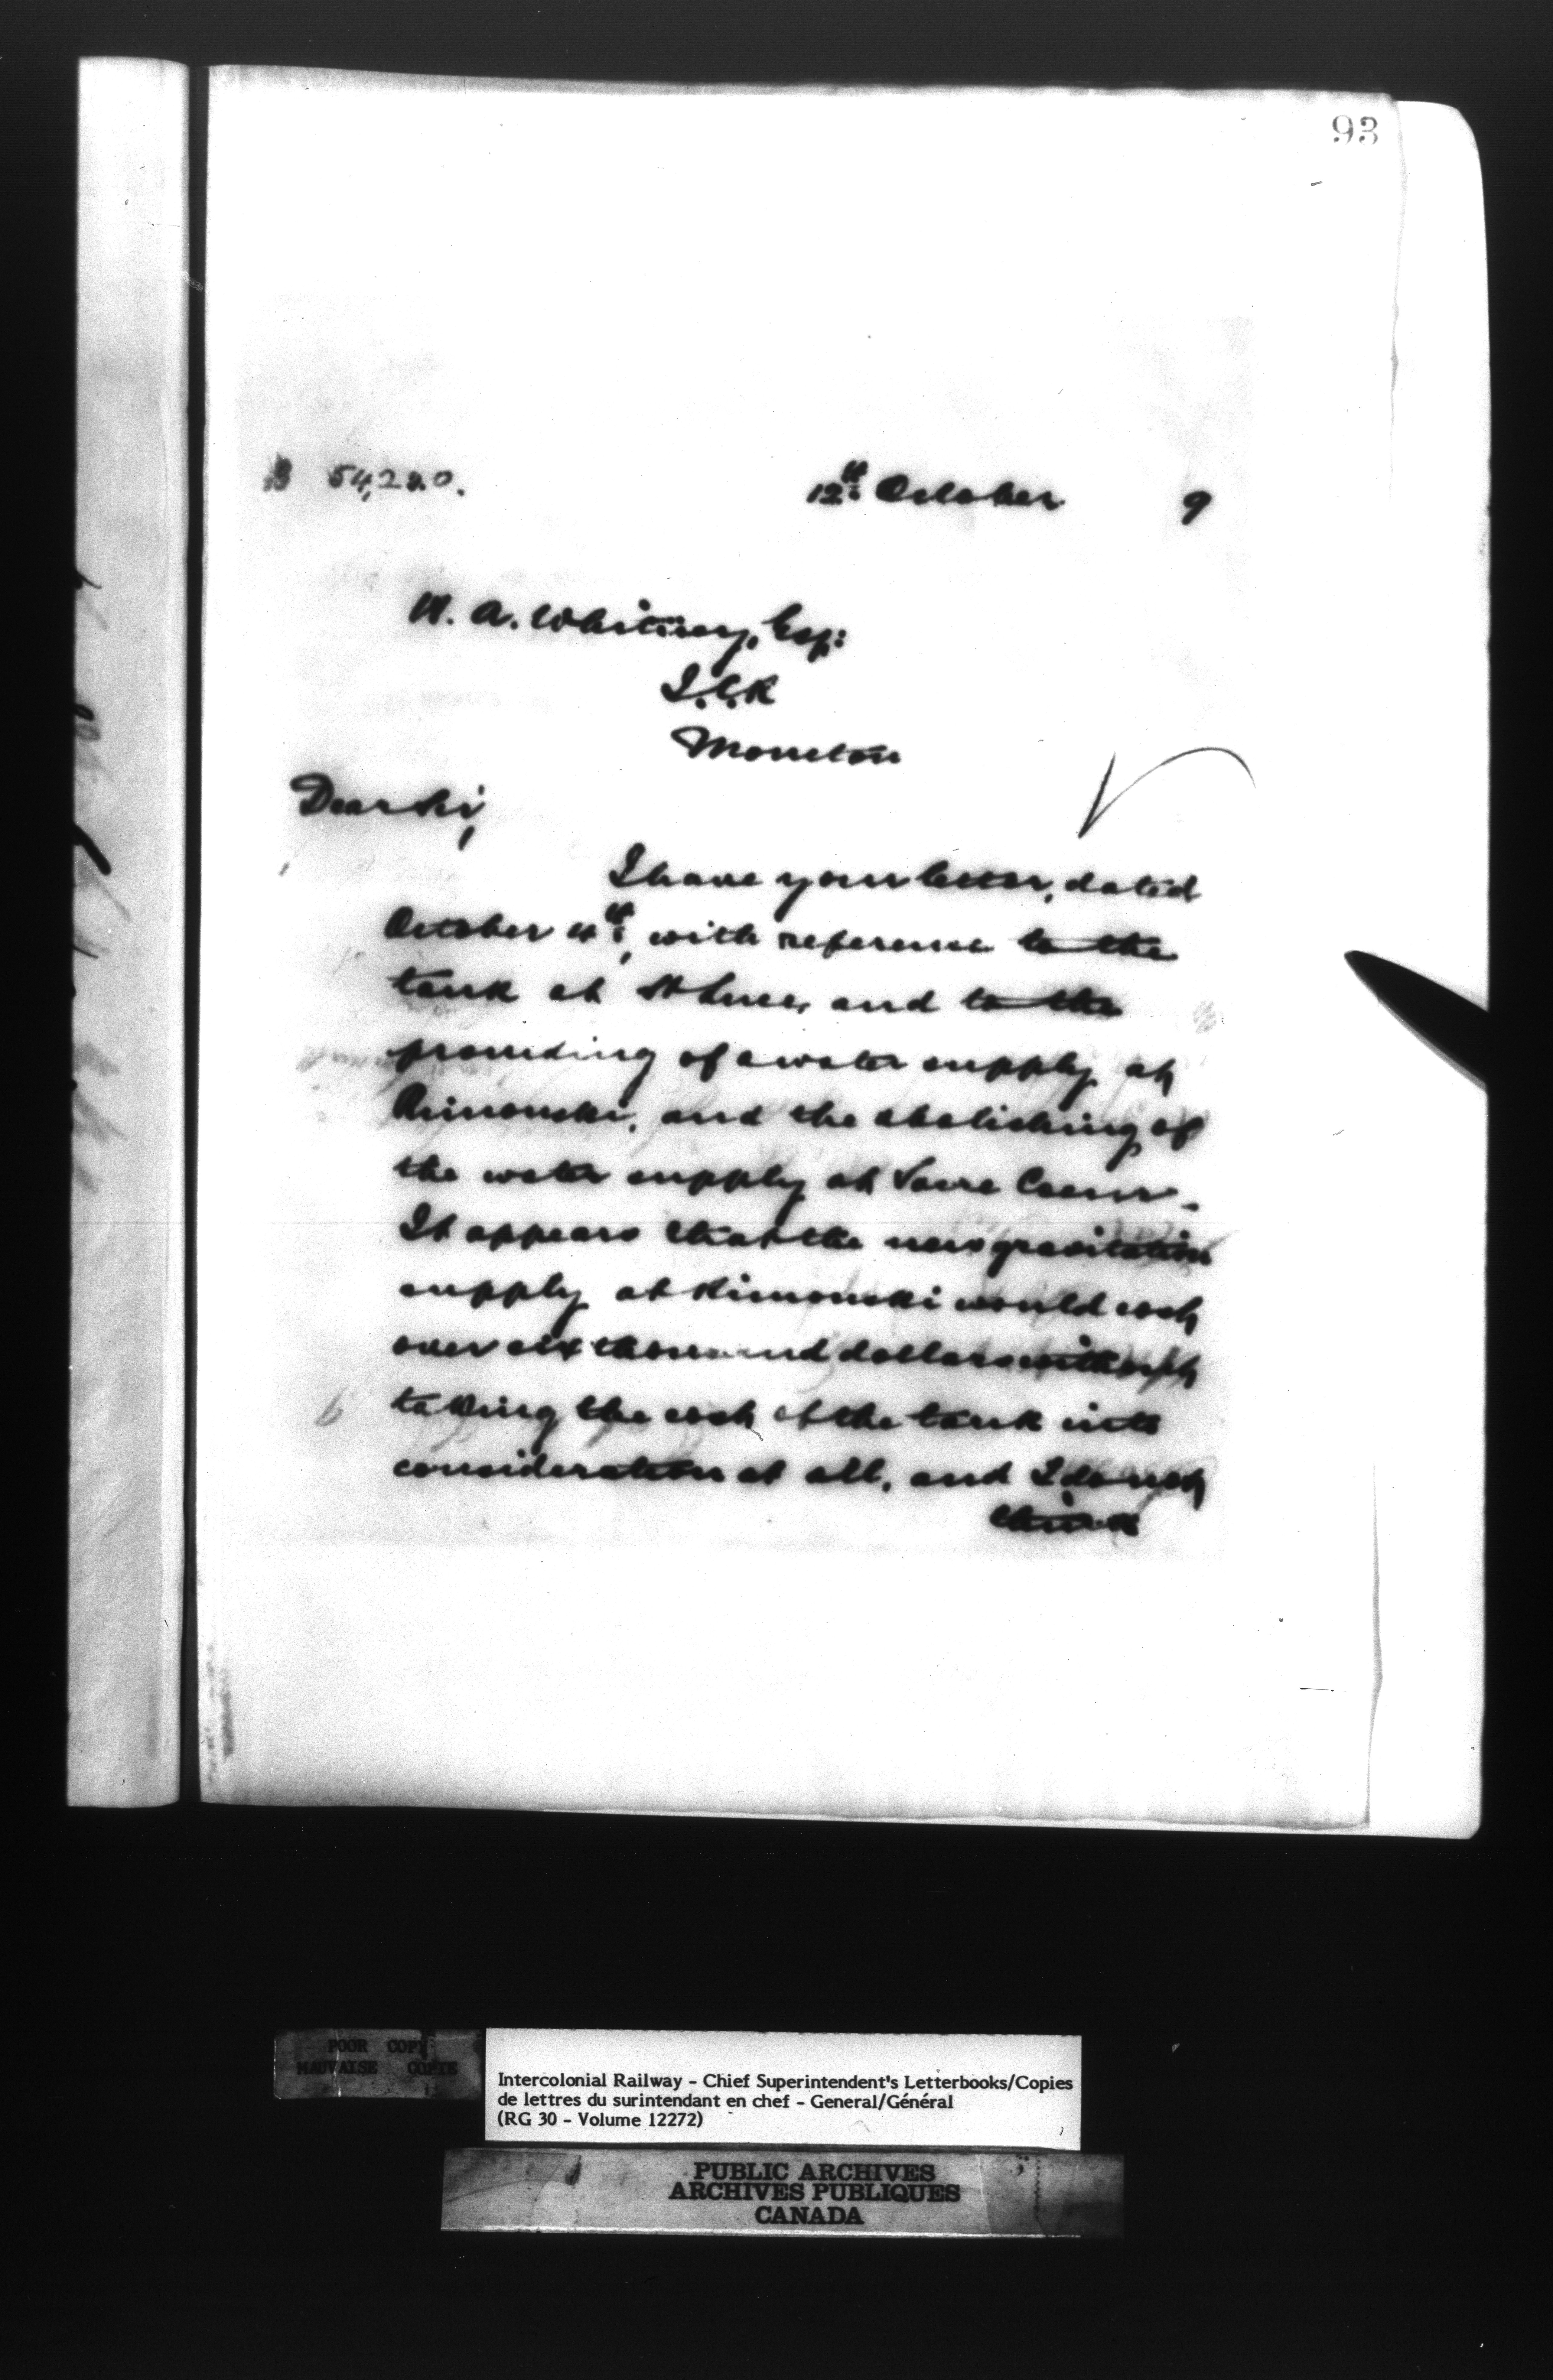 93
B 54,220.
12th October 9
H. A. Whitney, Esq:
I.C.R
Moncton
Dear Sir,
I have your letter, dated
October 4th, with reference to the
tank at St Luce, and to the
providing of a water supply at
Rimouski, and the abolishing of
the water supply at Sacre Coeur.
It appears that the new gravitation
supply at Rimouski would cost
over six thousand dollars without
taking the cost of the tank into
consideration at all, and I do not
think
POOR COPY
MAUVAISE COPIE
Intercolonial Railway - Chief Superintendent's Letterbooks/Copies
de lettres du surintendant en chef - General/Général
(RG 30 - Volume 12272)
PUBLIC ARCHIVES
ARCHIVES PUBLIQUES
CANADA